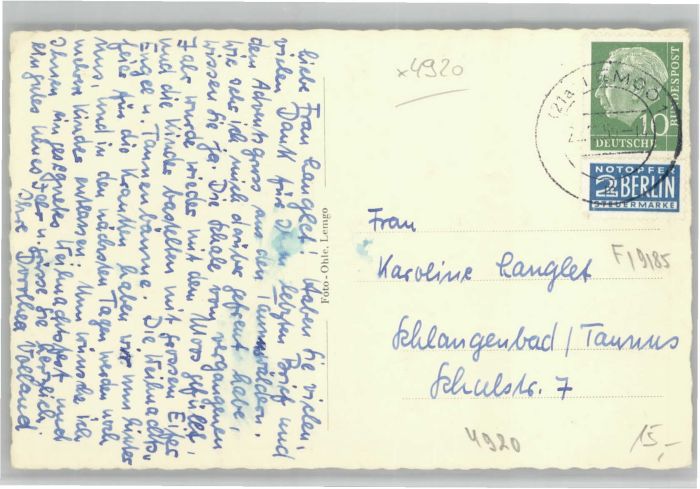 liebe Frau Langlet! Haben Sie vielen,
vielen Dank für Ihren letzten Brief und
den Adventsgruss aus den Taunuswäldern.
Wie sehr ich mich darüber gefreut habe,
wissen Sie ja. Die Schale vom vergangenen
Jahr wurde wieder mit dem Moos gefüllt,
und die Kinder bastelten mit grossem Eifer
Engel u. Tannenbäume. Die Weihnachts-
feiern für die Kranken haben wir nun hinter
uns, und in den nächsten Tagen werden noch
mehrere Kinder entlassen. Nun wünsche ich
Ihnen ein gesegnetes Weihnachtsfest und
ein gutes neues Jahr u. grüsse Sie herzlich
Ihre Dorothea Volland
Foto-Ohle, Lemgo
x4920
(21a) LEMGO
10
DEUTSCHE
BUNDESPOST
NOTOPFER
2 BERLIN
STEUERMARKE
Frau
Karoline Langlet
F/9/85
Schlangenbad/Taunus
Schulstr. 7
4920
15,-